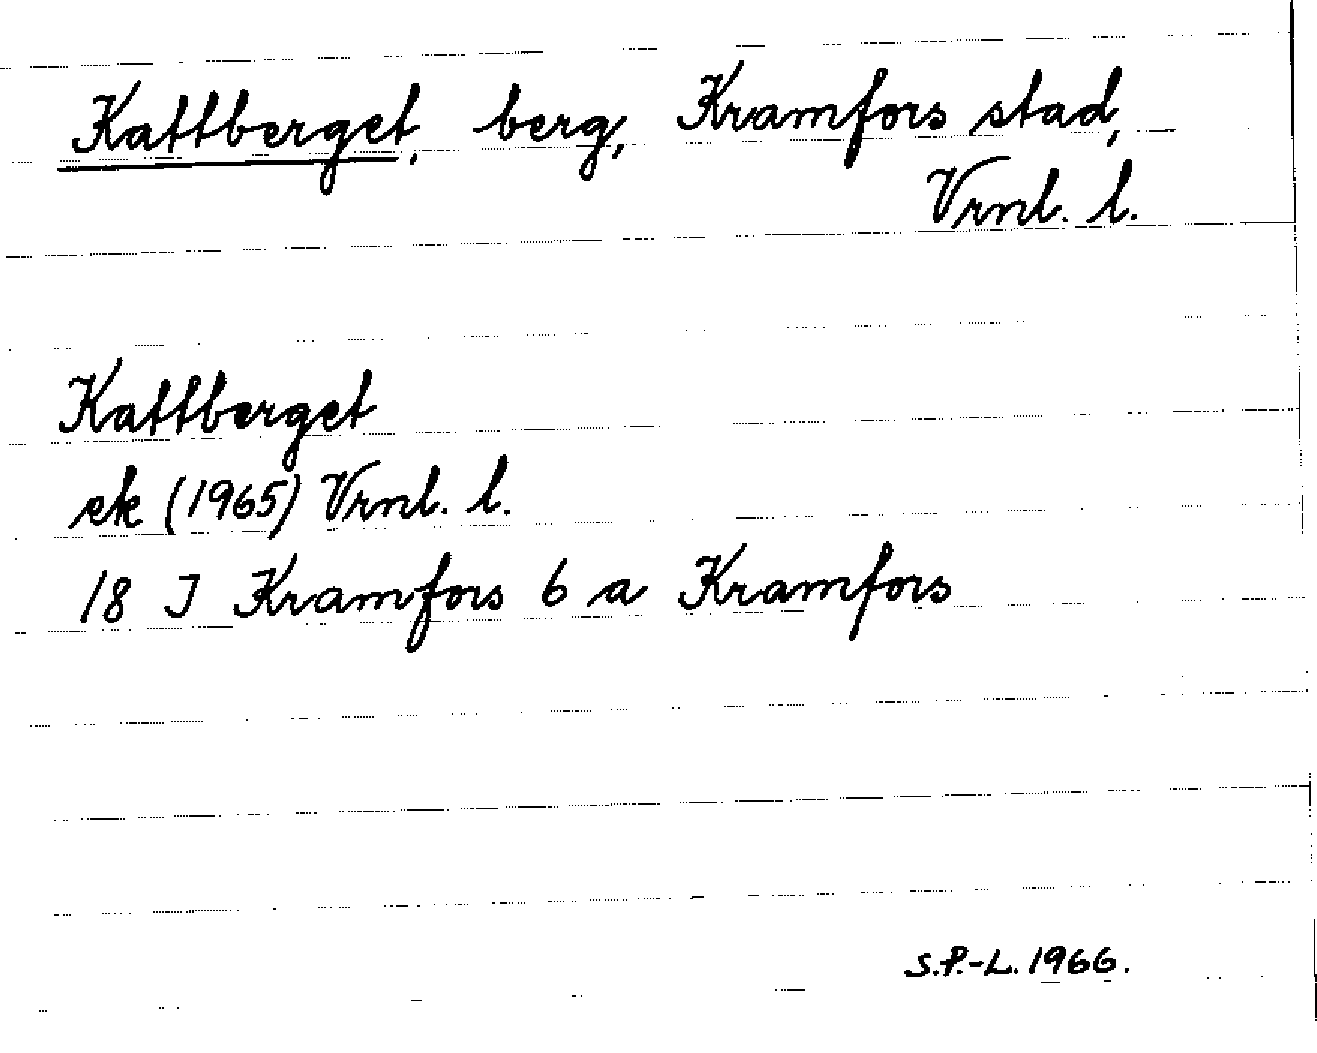 Kattberget, berg, Kramfors stad,
Vrnl. l.
Kattberget
ek (1965) Vrnl. l.
18 I Kramfors 6 a Kramfors
S.P.-L. 1966.